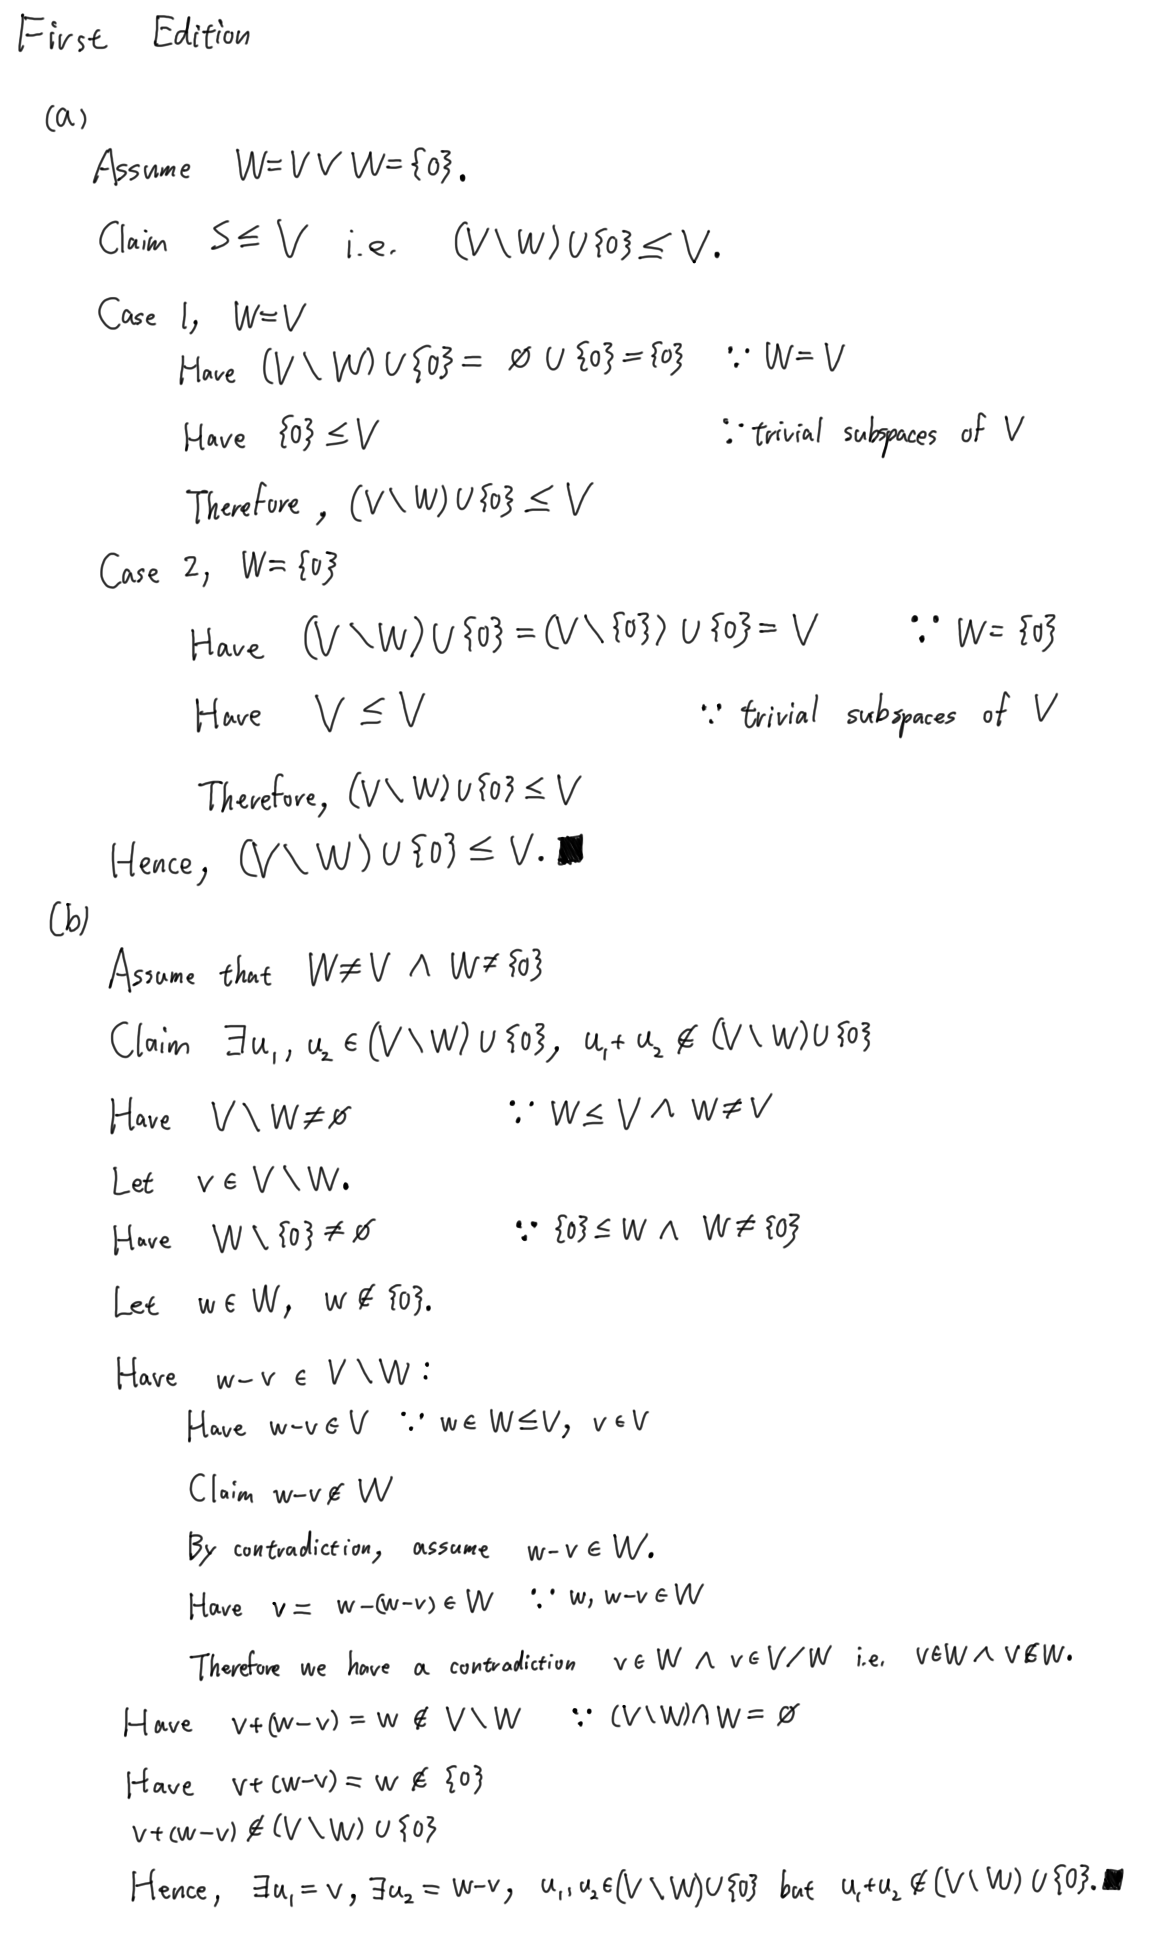 First Edition
(a)
Assume W=V ∨ W={0}.
Claim S≤V i.e. (V\W)∪{0}≤V.
Case 1, W=V
Have (V\W)∪{0}= ∅∪{0}={0} ∵ W=V
Have {0}≤V ∵ trivial subspaces of V
Therefore, (V\W)∪{0}≤V
Case 2, W={0}
Have (V\W)∪{0}=(V\{0})∪{0}=V ∵ W={0}
Have V≤V ∵ trivial subspaces of V
Therefore, (V\W)∪{0}≤V
Hence, (V\W)∪{0}≤V. ■
(b)
Assume that W≠V ∧ W≠{0}
Claim ∃u₁, u₂∈(V\W)∪{0}, u₁+u₂∉(V\W)∪{0}
Have V\W≠∅ ∵ W≤V ∧ W≠V
Let v∈V\W.
Have W\{0}≠∅ ∵ {0}≤W ∧ W≠{0}
Let w∈W, w∉{0}.
Have w-v ∈ V\W:
Have w-v∈V ∵ w∈W≤V, v∈V
Claim w-v∉W
By contradiction, assume w-v∈W.
Have v= w-(w-v)∈W ∵ w, w-v∈W
Therefore we have a contradiction v∈W ∧ v∈V/W i.e. v∈W ∧ v∉W.
Have v+(w-v)=w∉V\W ∵ (V\W)∩W=∅
Have v+(w-v)=w∉{0}
v+(w-v)∉(V\W)∪{0}
Hence, ∃u₁=v, ∃u₂=w-v, u₁,u₂∈(V\W)∪{0} but u₁+u₂∉(V\W)∪{0}. ■